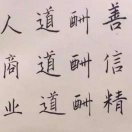 人道酬善
商道酬信
业道酬精